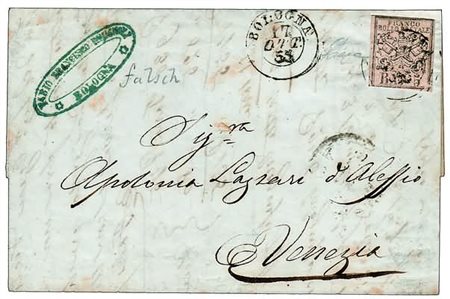 BOLOGNA
17
OTT
55
FRANCO
BOLLO POSTALE
BAJ
FABIO FRANCESCO
BOLOGNA
falsch
Sig.ra
Apolonia Lazzari d'Alessio
Venezia